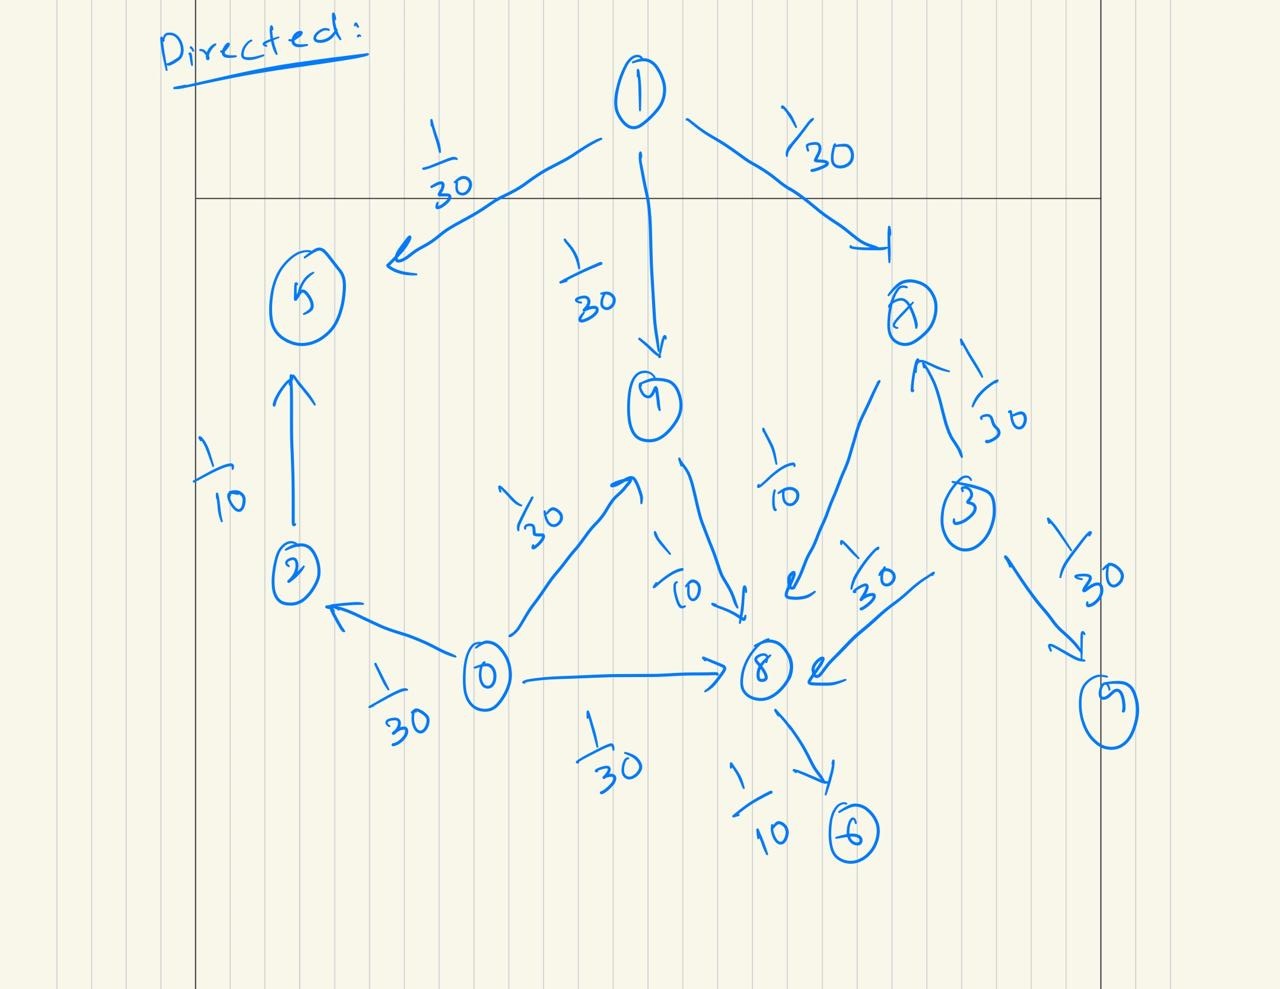 Directed:
1
1/30
1/30
1/30
5
1/30
1/10
1/30
1/10
1/10
3
1/30
1/10
1/30
2
0
8
9
1/30
1/30
1/10
6